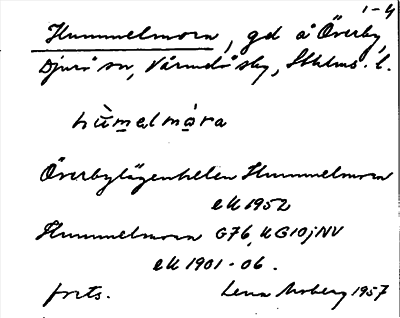 1-4
Hummelmora, gd å Överby,
Djurö sn, Värmdö sky, Sthlms. l.
hùmelmåra
Överbylägenheten Hummelmora
ek 1952
Hummelmora G76, KG10jNV
ek 1901-06.
forts. Lena Moberg 1957